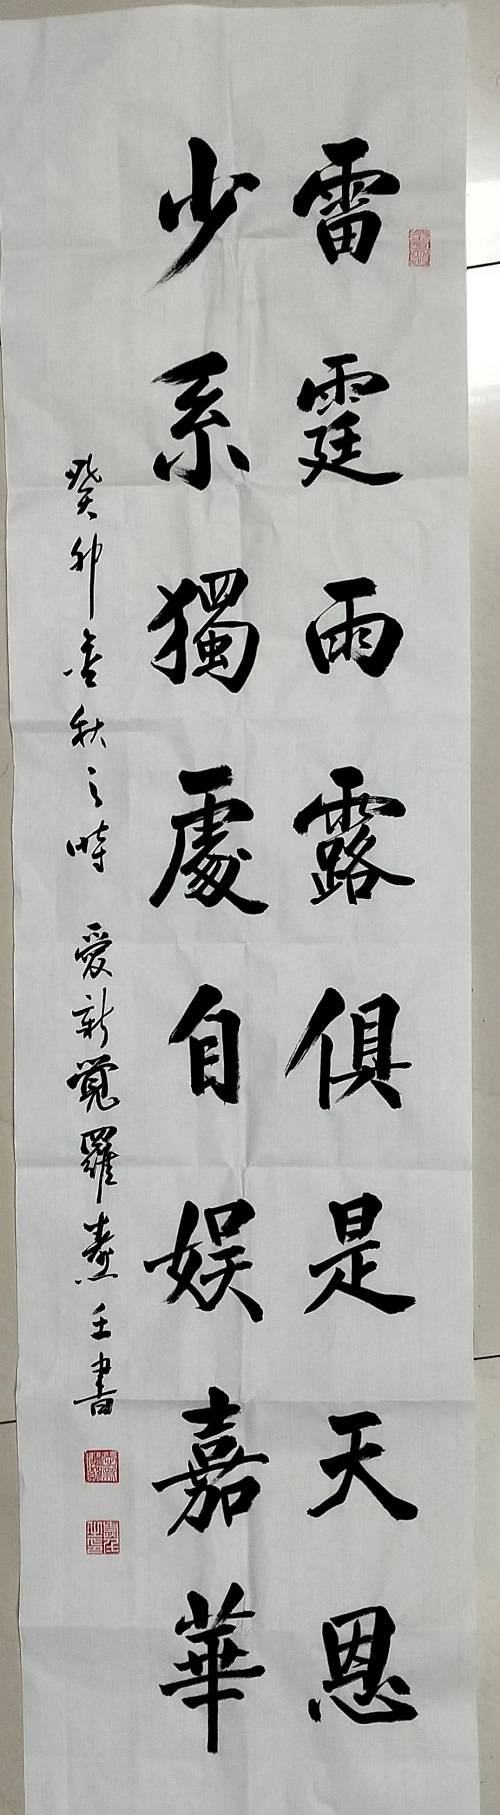 雷霆雨露俱是天恩
少系獨處自娱嘉華
癸卯金秋之時 愛新覺羅燾壬書